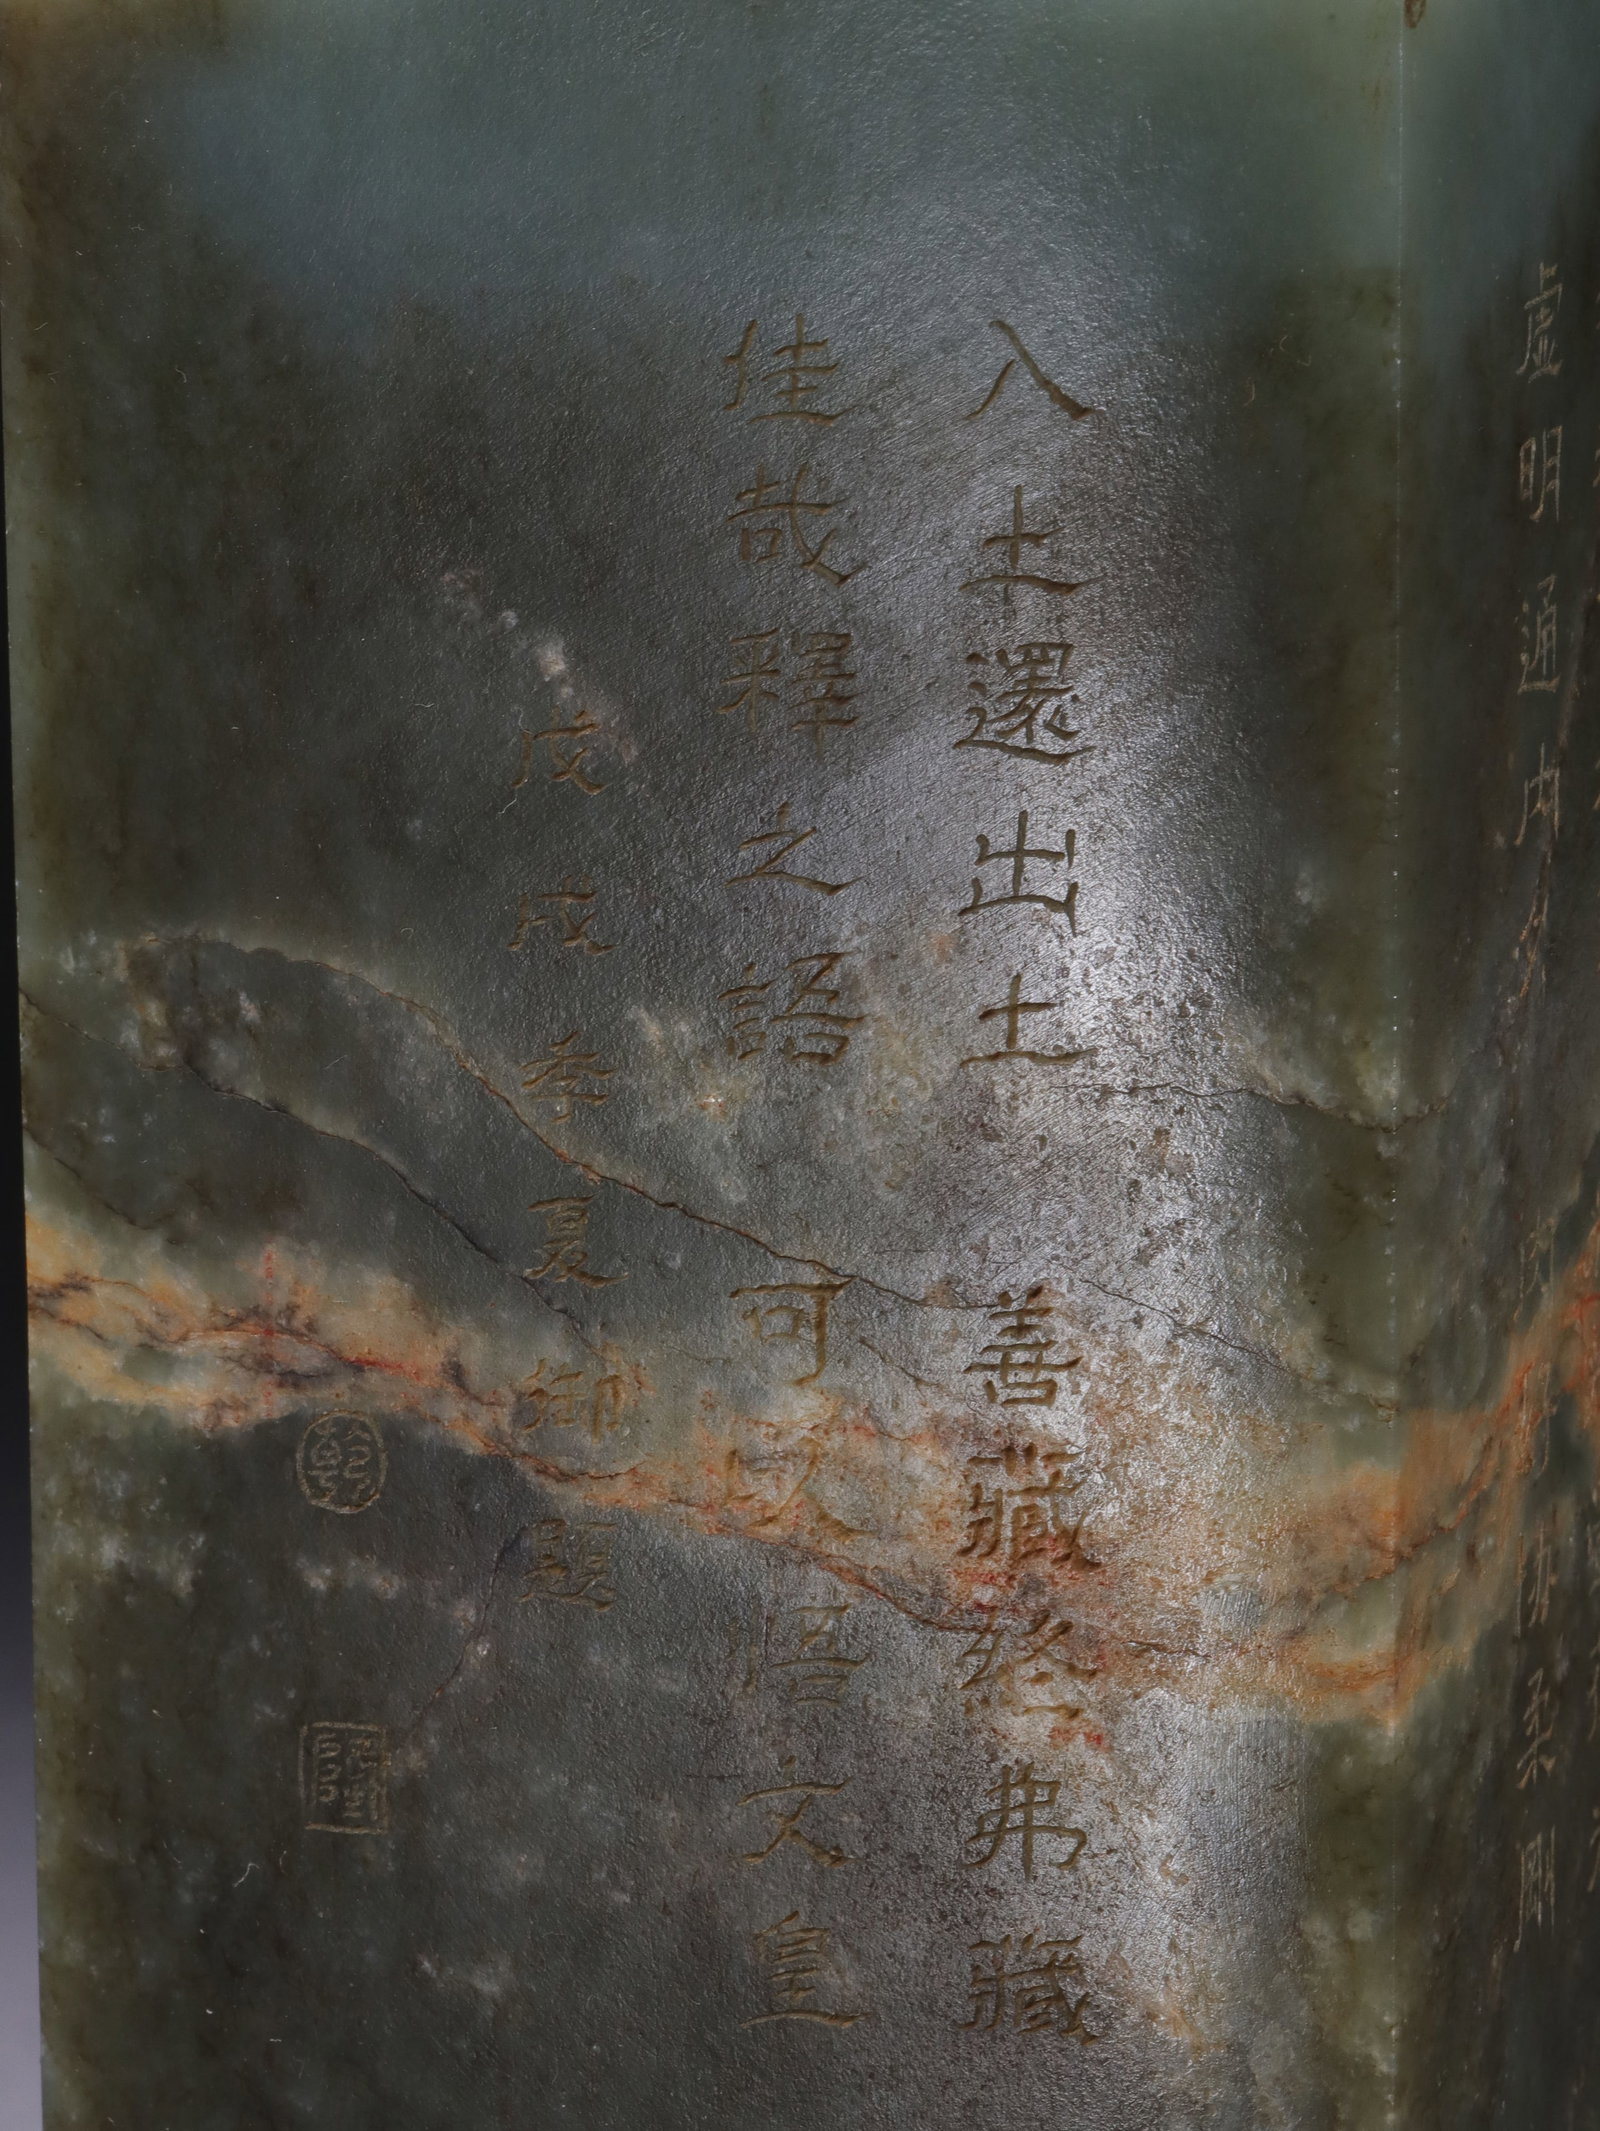 虛明通內
柔剛
入土還出土善藏終弗藏
佳哉釋之語可以悟文皇
戊戌季夏御題
乾
隆